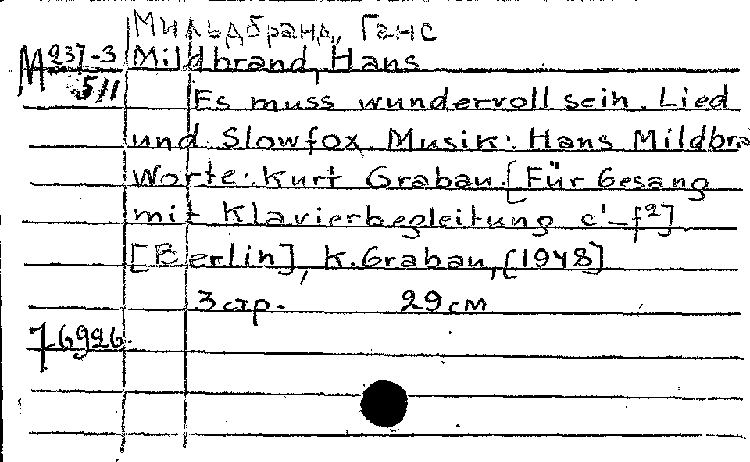 Мильдбранд, Ганс
М 237-3 Mildbrand, Hans
511 Es muss wundervoll sein. Lied
und Slowfox. Musik: Hans Mildbra
Worte: Kurt Grabau. [Für Gesang
mit Klavierbegleitung c'-f²]
[Berlin], K. Grabau, [1948]
3 стр. 29 см
76926